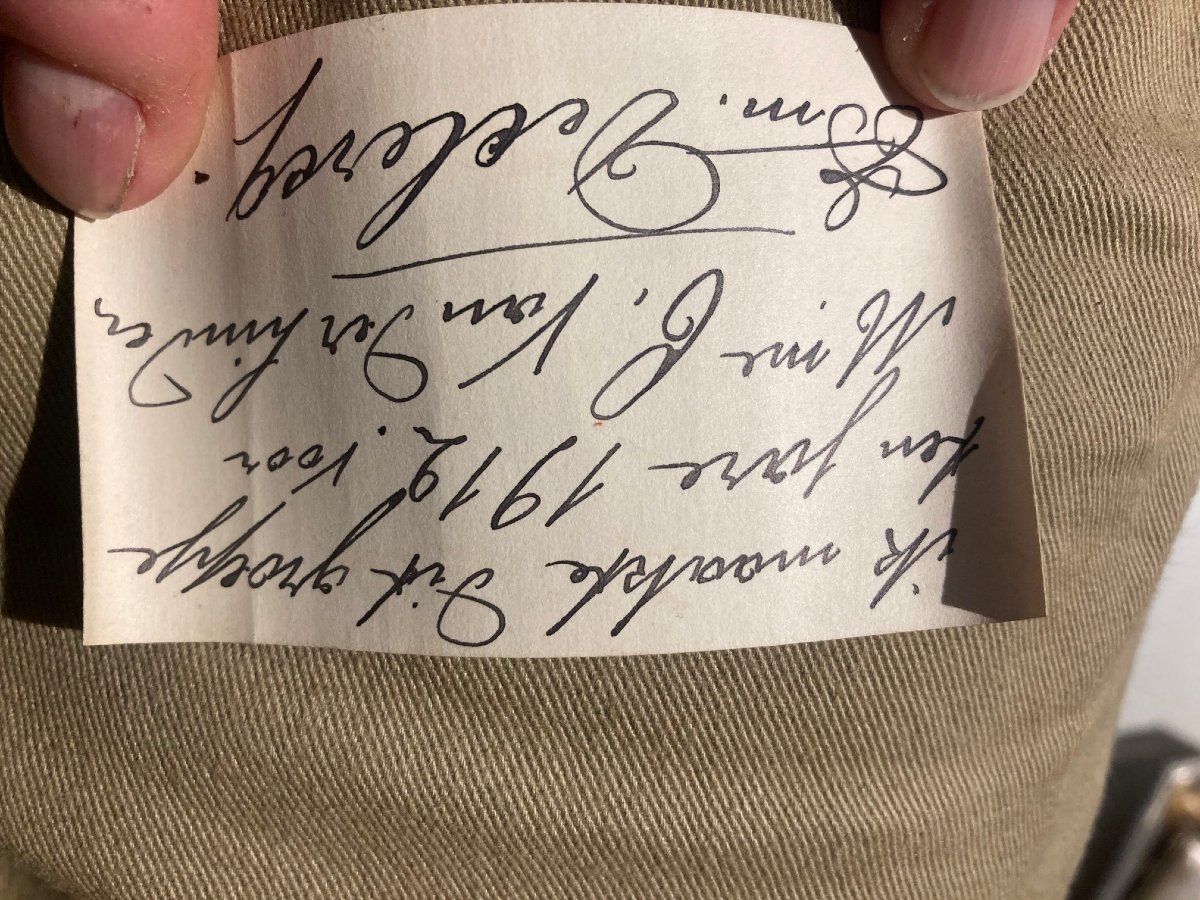 ik maakte dit groepje
ten jare 1912, voor
Mme C. Van Der hinden,
Em. Dekerey.